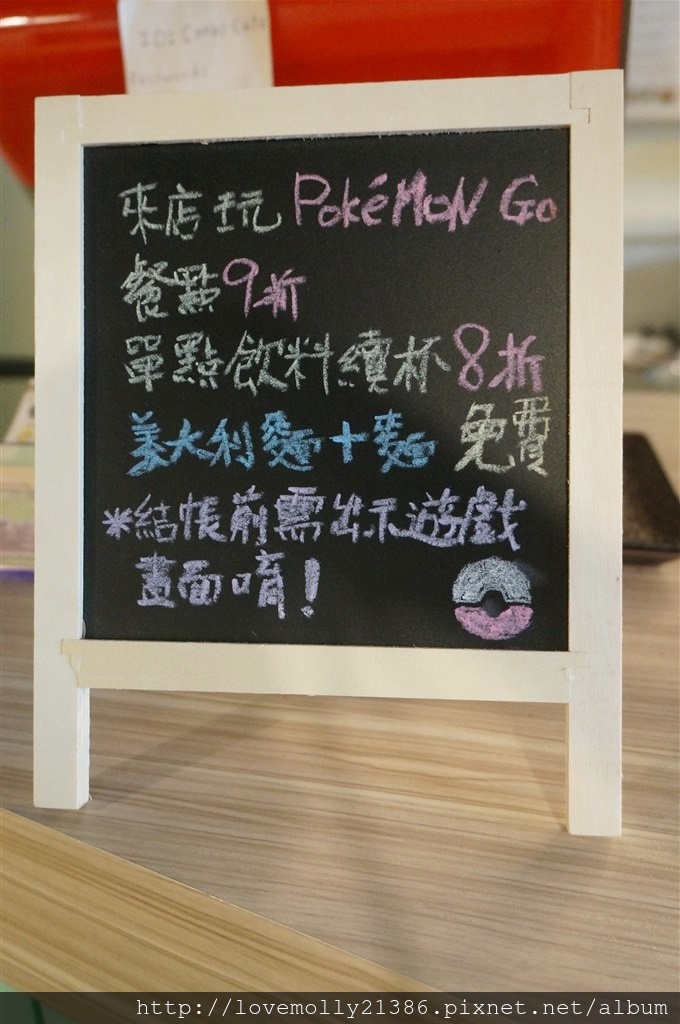 來店玩 PokéMoN Go
餐點9折
單點飲料續杯8折
義大利麵+麵 免費
*結帳前需出示遊戲
畫面唷!
http://lovemolly21386.pixnet.net/album